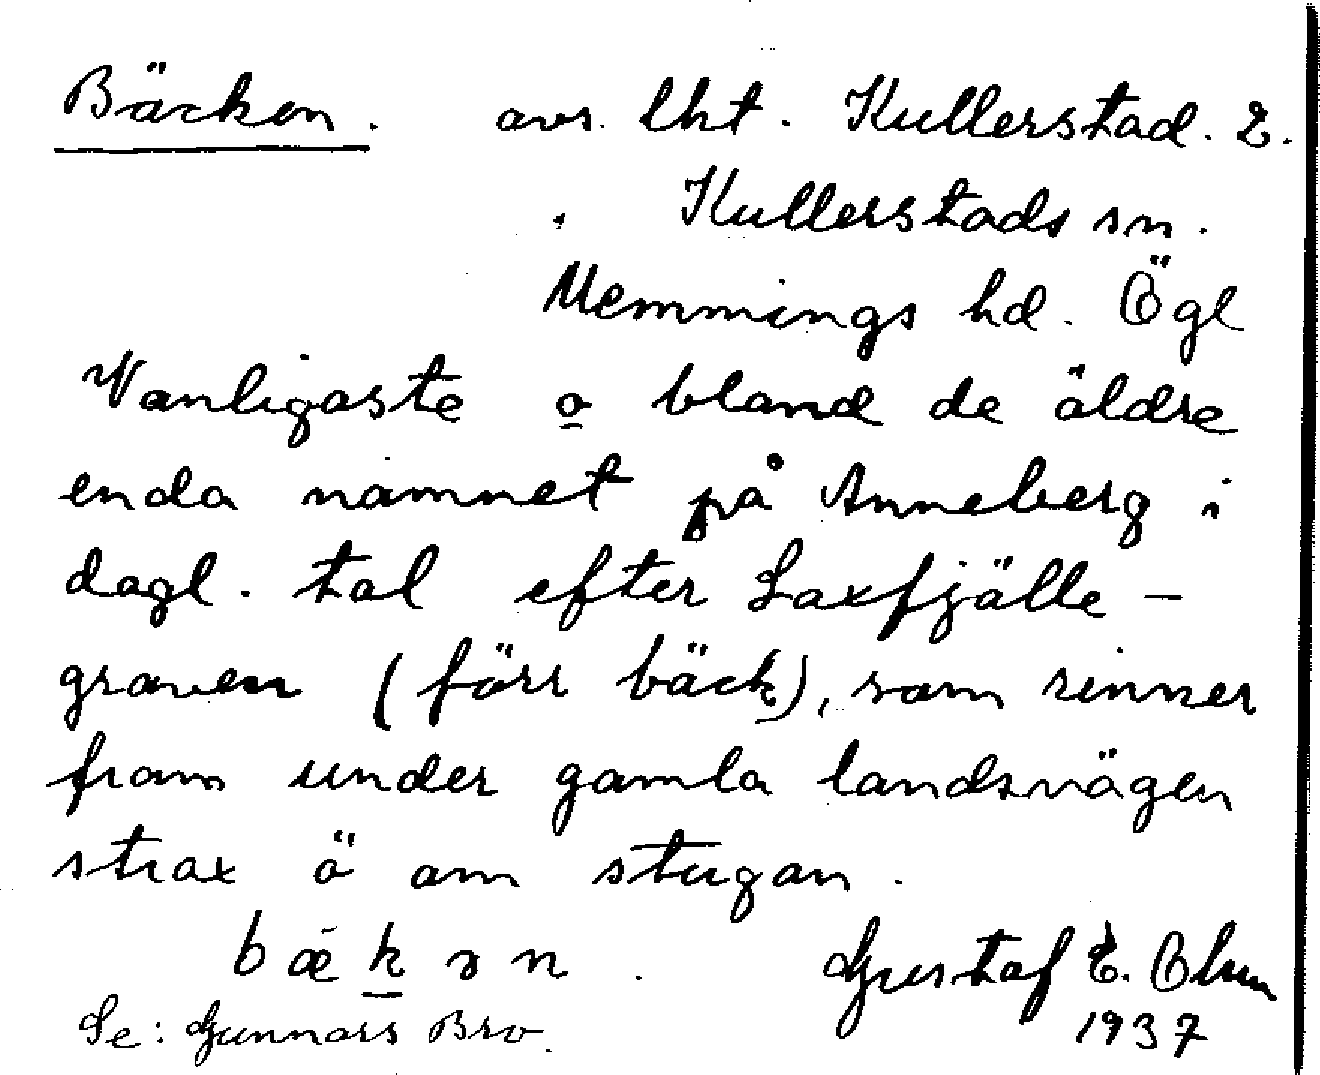 Bäcken. avs. lht. Kullerstad. 2.
Kullerstads sn.
Memmings hd. Ögl
Vanligaste o bland de äldre
enda namnet på Anneberg i
dagl. tal efter Laxfjälle-
graven (förr bäck), som rinner
fram under gamla landsvägen
strax ö om stugan.
bækən. Gustaf E. Olun
Se: Gunnars Bro. 1937